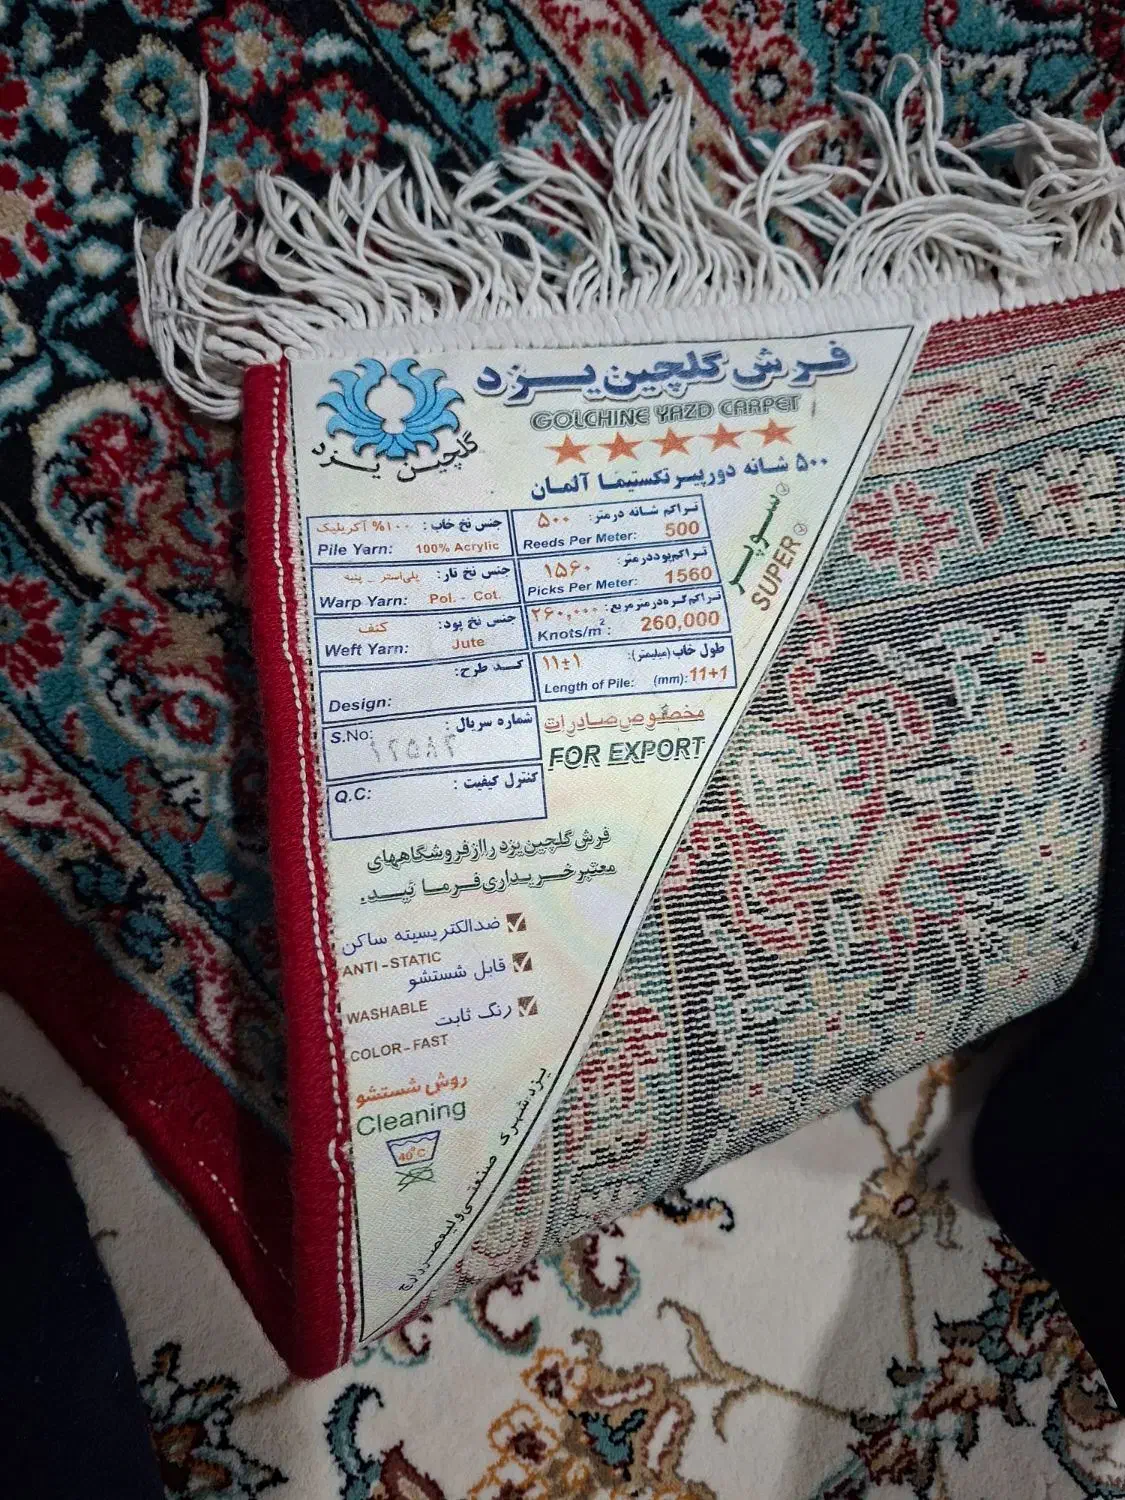 فرش گلچین یزد
گلچین یزد
GOLCHINE YAZD CARPET
۵۰۰ شانه دورپیر تکستیما آلمان
سوپر
SUPER
جنس نخ خاب: ۱۰۰% آکریلیک
Pile Yarn: 100% Acrylic
تراکم شانه درمتر: ۵۰۰
Reeds Per Meter: 500
جنس نخ تار: پلی‌استر _ پنبه
Warp Yarn: Pol. - Cot.
تراکم‌پوددرمتر: ۱۵۶۰
Picks Per Meter: 1560
جنس نخ پود: کنف
Weft Yarn: Jute
تراکم گره درمترمربع: ۲۶۰,۰۰۰
Knots/m²: 260,000
کد طرح:
Design:
طول خاب (میلیمتر): ۱۱±۱
Length of Pile: (mm): 11+1
شماره سریال:
S.No: ۱۲۵۸۳
مخصوص صادرات
FOR EXPORT
کنترل کیفیت:
Q.C:
فرش گلچین یزد را از فروشگاههای
معتبر خریداری فرمائید.
ضدالکتریسیته ساکن
ANTI-STATIC
قابل شستشو
WASHABLE
رنگ ثابت
COLOR-FAST
روش شستشو
Cleaning
40°C
یزد، شهرک صنعتی ولیعصر